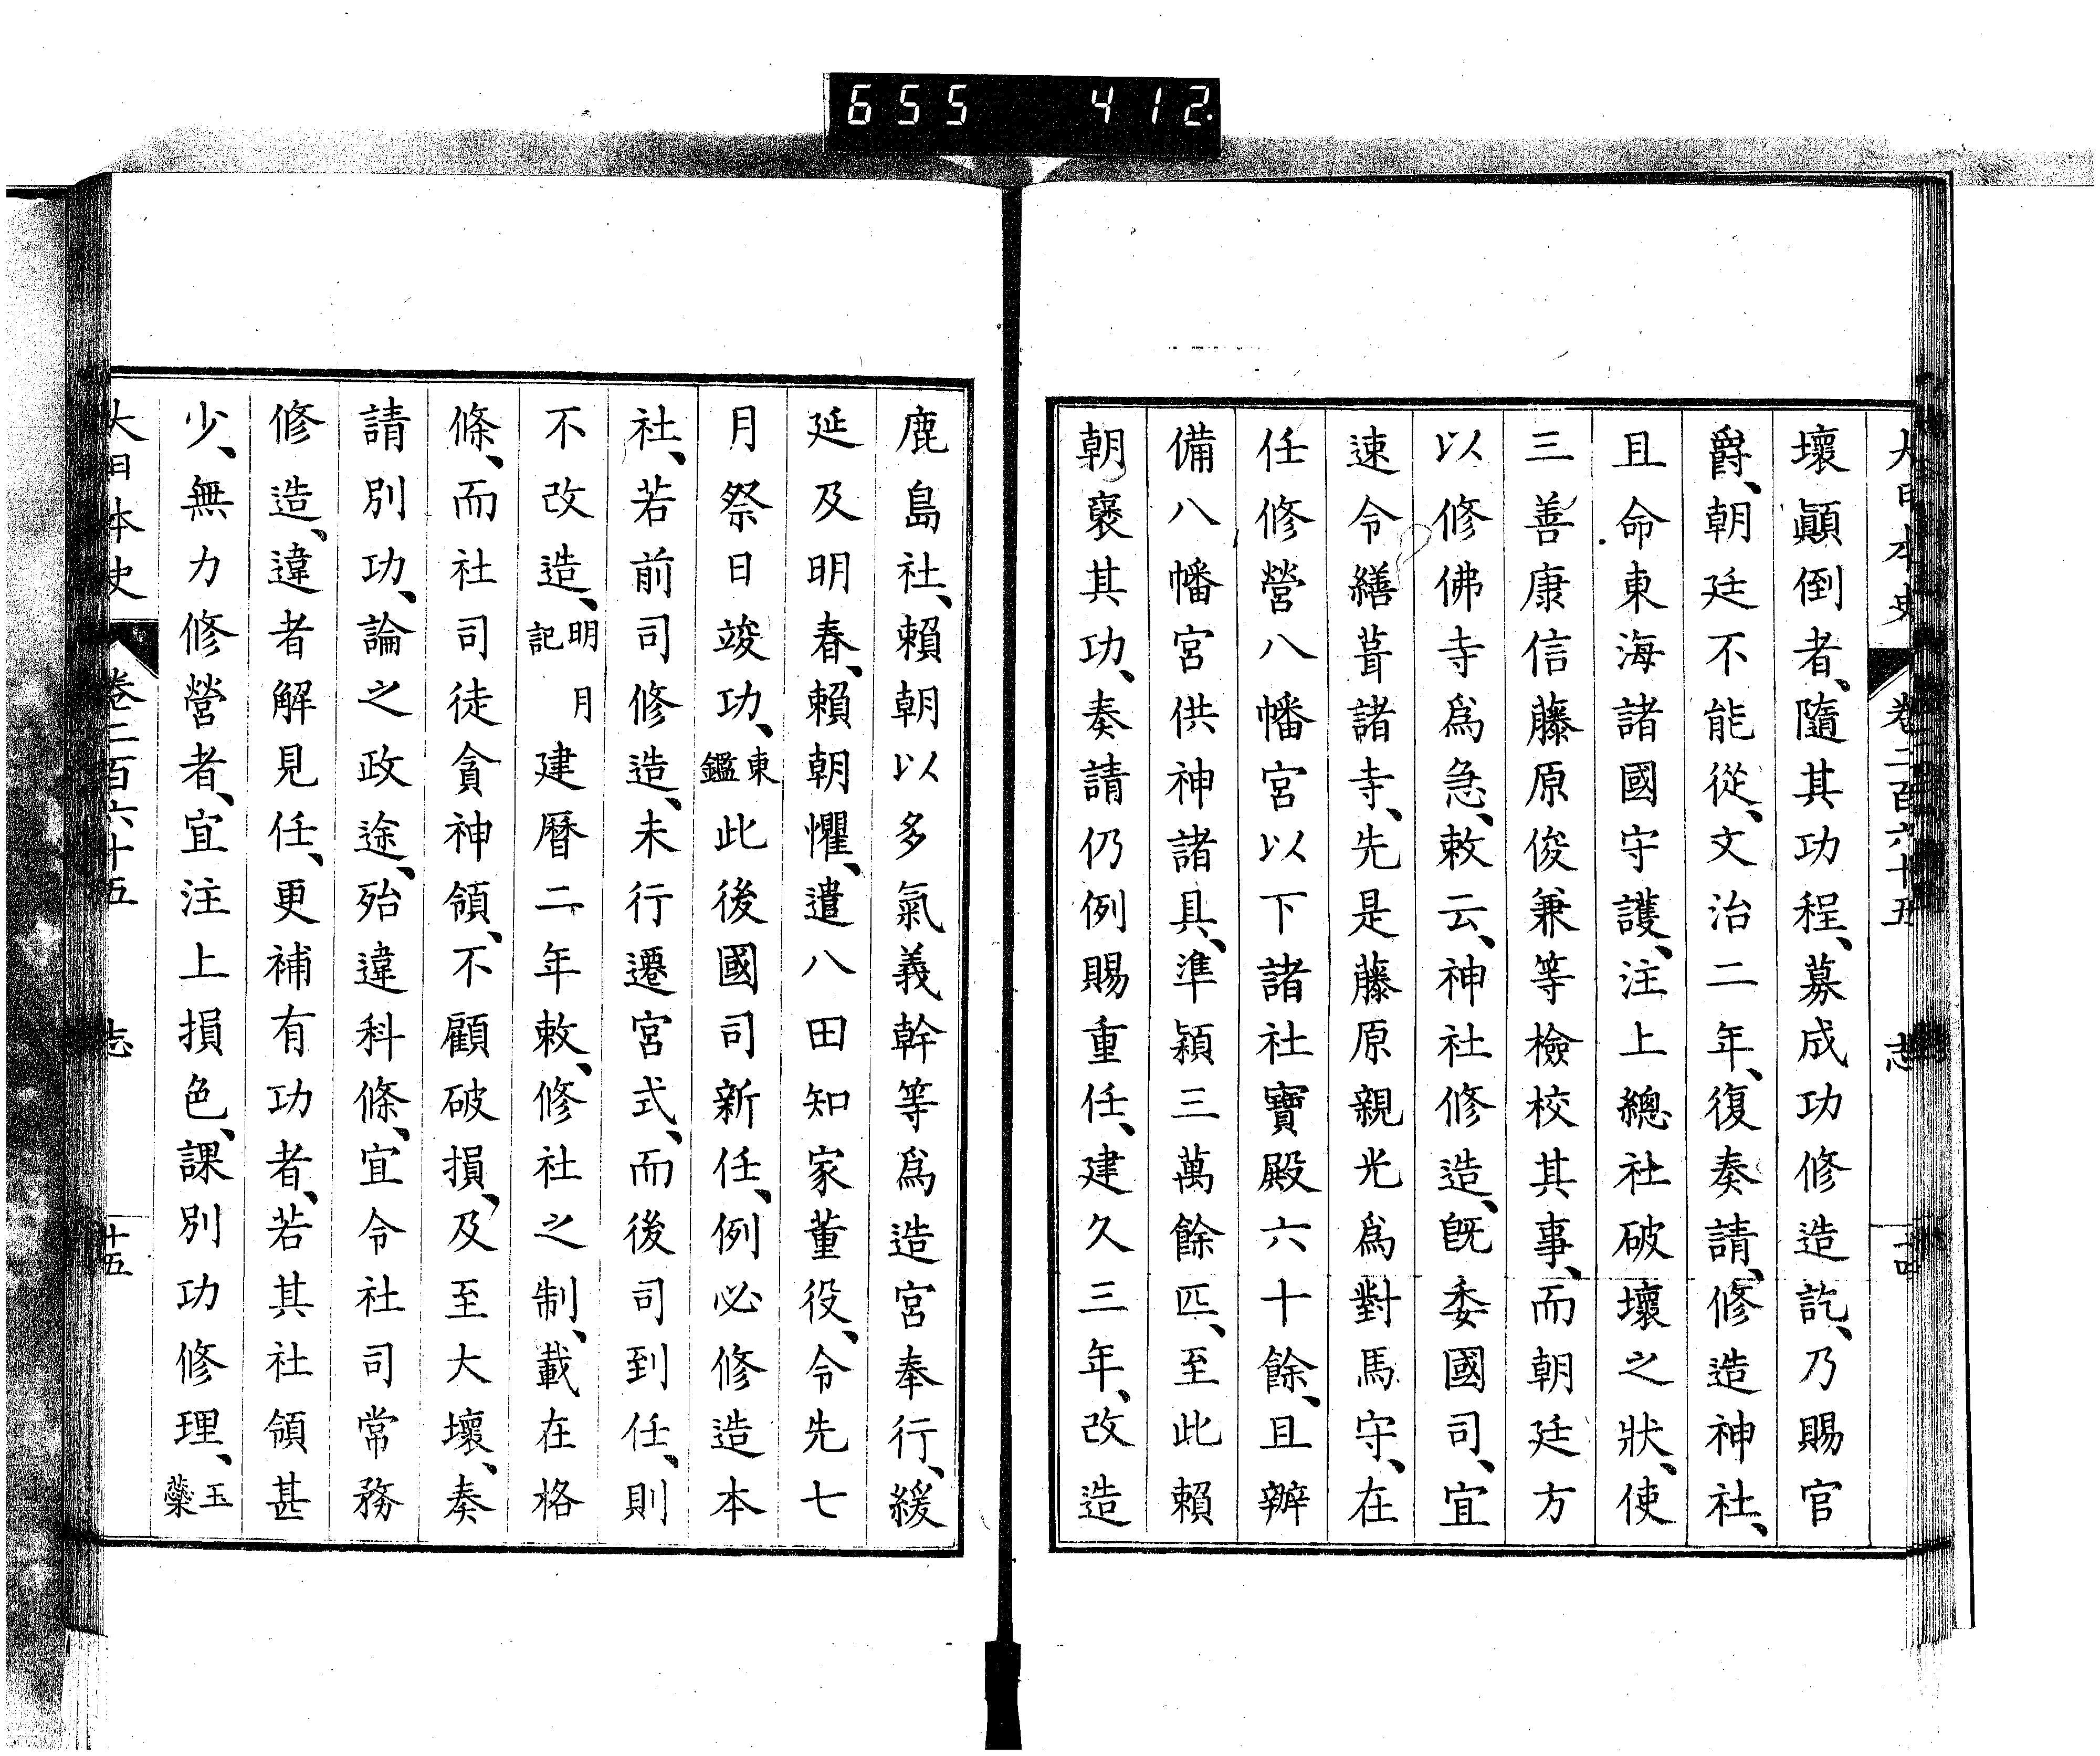 655 412
大日本史 卷二百六十五 志
壞顚倒者、隨其功程、募成功修造訖、乃賜官
爵、朝廷不能從、文治二年、復奏請、修造神社、
且命東海諸國守護、注上總社破壞之狀、使
三善康信藤原俊兼等檢校其事、而朝廷方
以修佛寺爲急、敕云、神社修造、旣委國司、宜
速令繕葺諸寺、先是藤原親光爲對馬守、在
任修營八幡宮以下諸社寶殿六十餘、且辨
備八幡宮供神諸具、準穎三萬餘匹、至此賴
朝襃其功、奏請仍例賜重任、建久三年、改造
鹿島社、賴朝以多氣義幹等爲造宮奉行、緩
延及明春、賴朝懼、遣八田知家董役、令先七
月祭日竣功、東鑑此後國司新任、例必修造本
社、若前司修造、未行遷宮式、而後司到任、則
不改造、明月記建曆二年敕、修社之制、載在格
條、而社司徒貪神領、不顧破損、及至大壞、奏
請別功、論之政途、殆違科條、宜令社司常務
修造、違者解見任、更補有功者、若其社領甚
少、無力修營者、宜注上損色、課別功修理、玉蘂
大日本史 卷二百六十五 志 十五